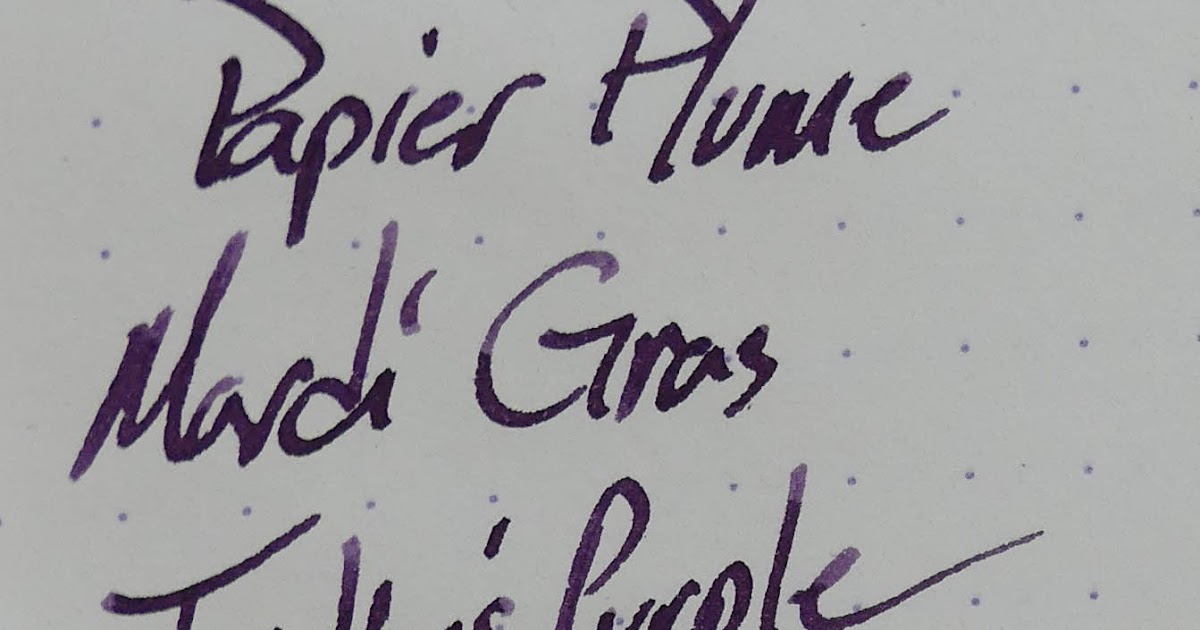 Papier Plume
Mardi Gras
Purple